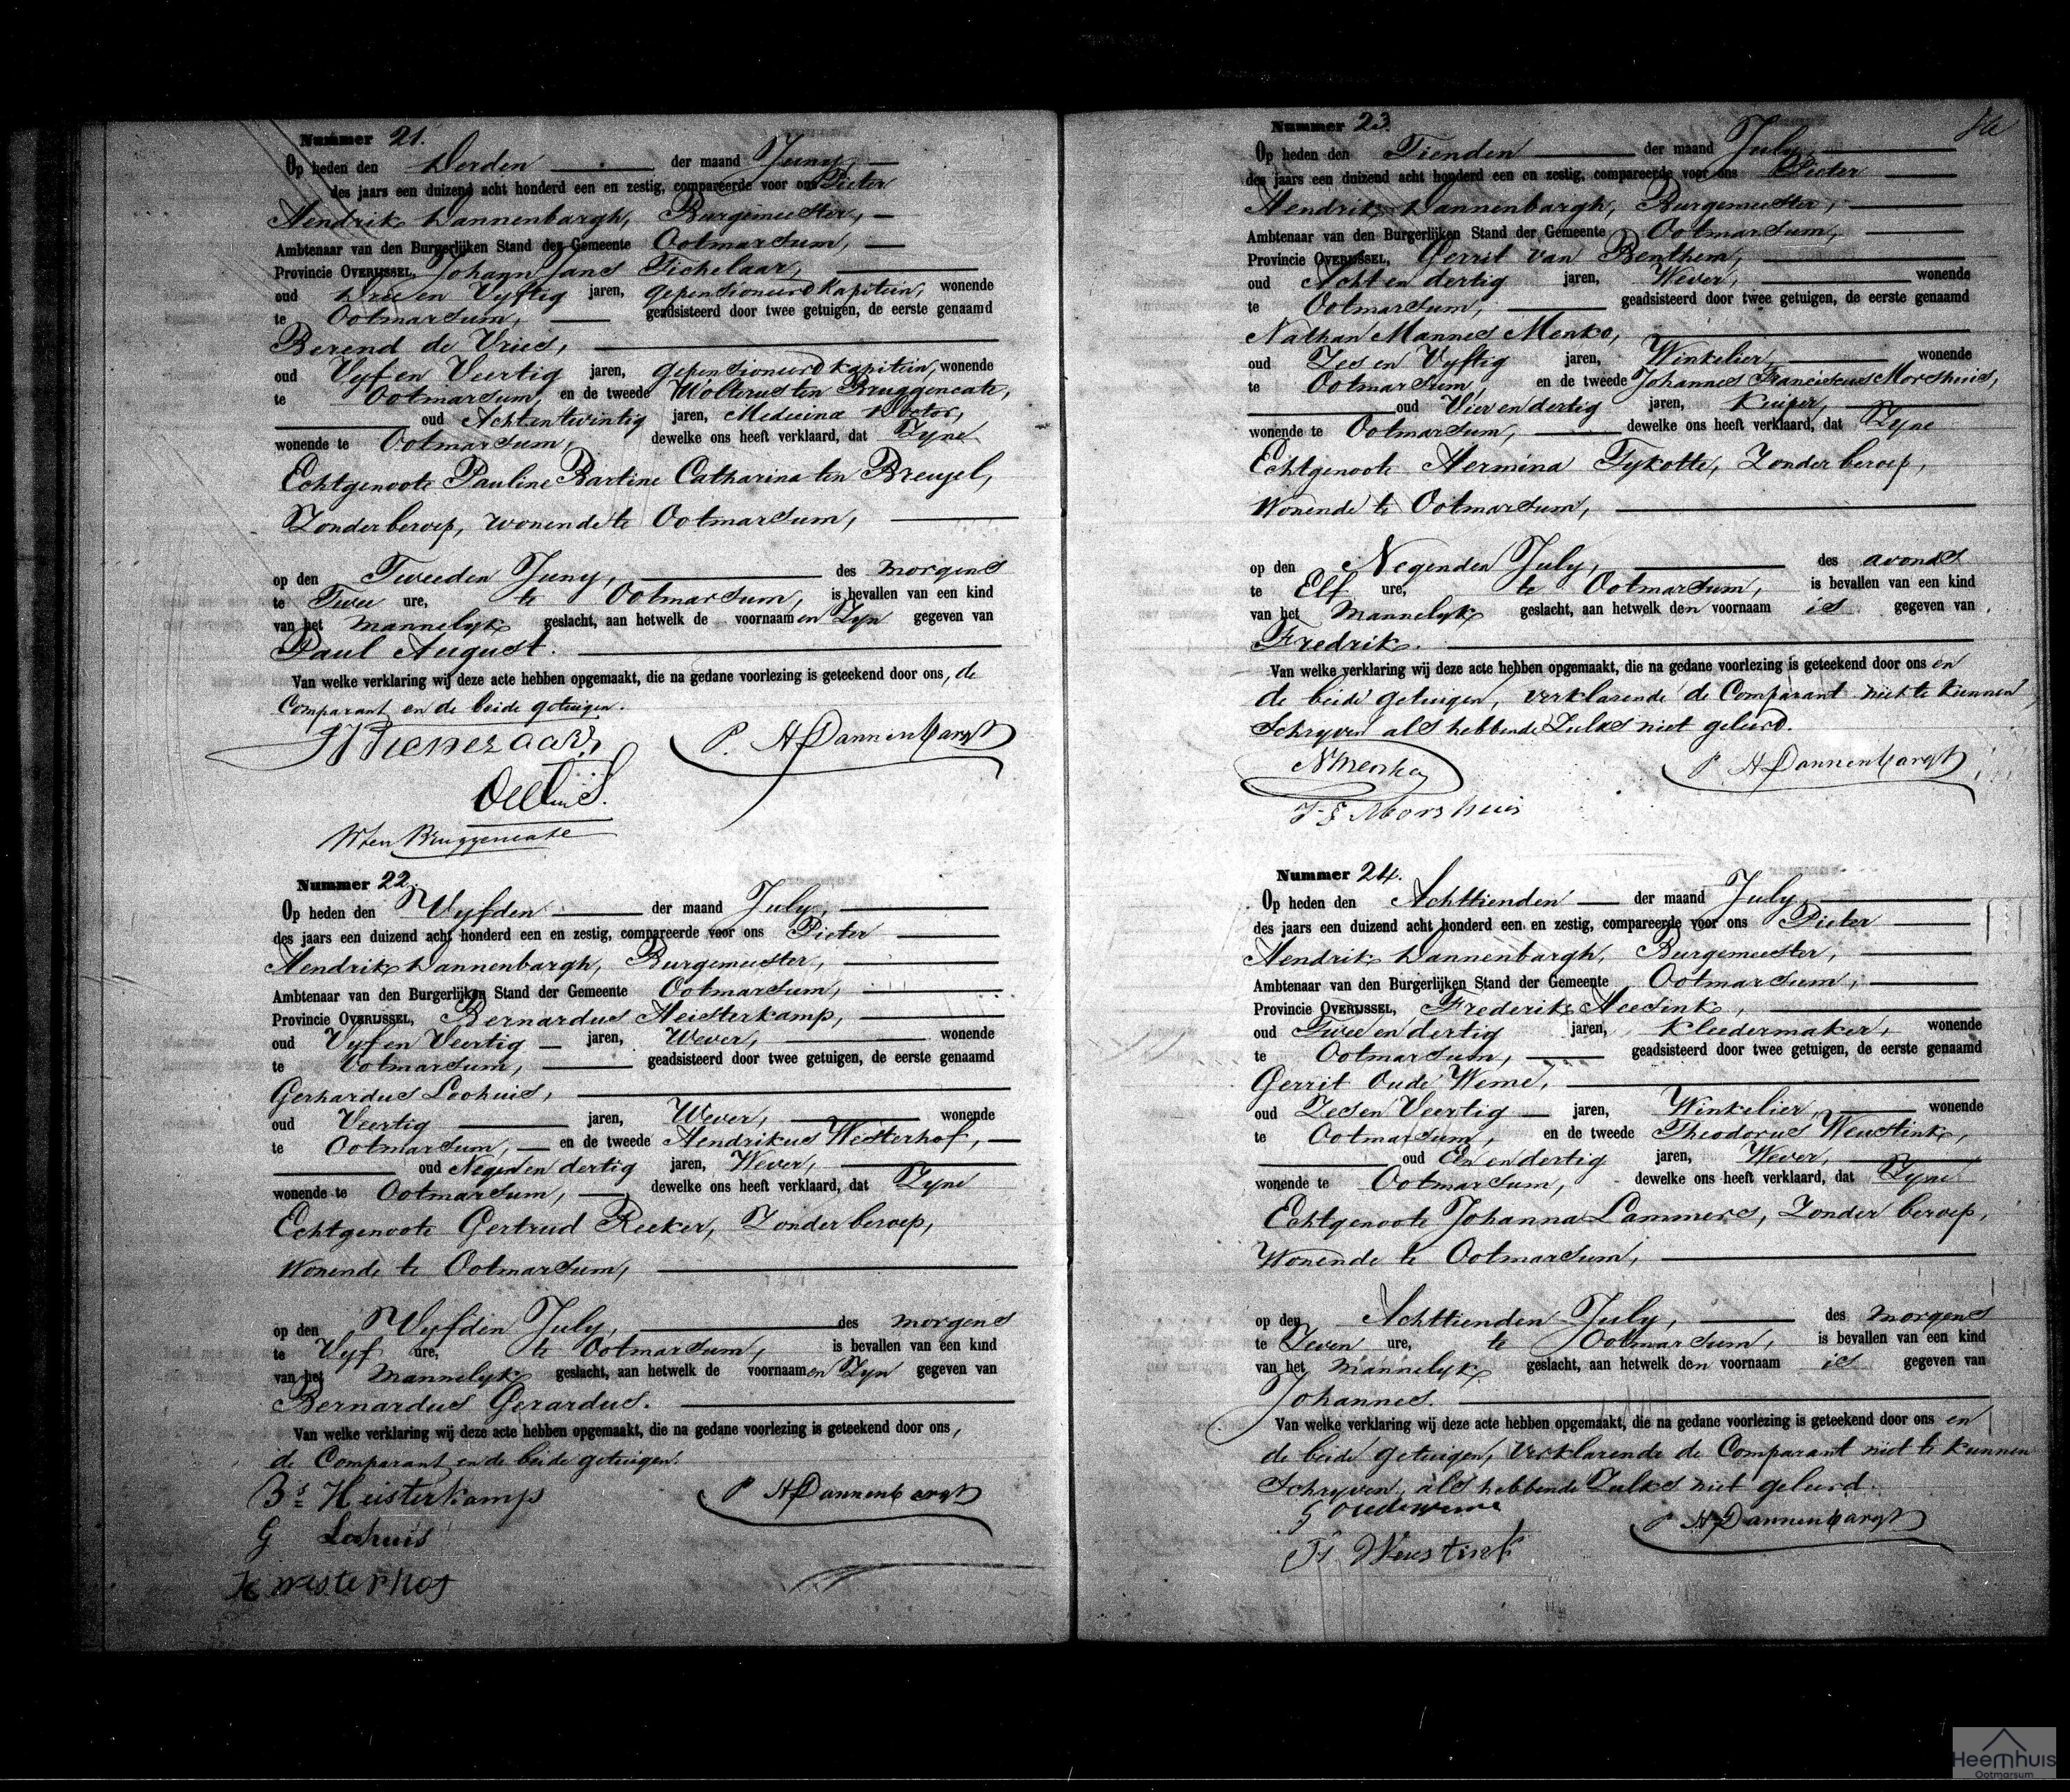 Nummer 21.
Op heden den Derden der maand Juny,
des jaars een duizend acht honderd een en zestig, compareerde voor ons Pieter
Hendrik Dannenbargh, Burgemeester,
Ambtenaar van den Burgerlijken Stand der Gemeente Ootmarsum,
Provincie OVERIJSSEL, Johann Jans Tichelaar,
oud Drie en Vyftig jaren, gepensioneerd kapitein, wonende
te Ootmarsum, geadsisteerd door twee getuigen, de eerste genaamd
Berend de Vries,
oud Vyf en Veertig jaren, gepensioneerd kapitein, wonende
te Ootmarsum, en de tweede Wolterus ten Bruggencate,
oud Acht en twintig jaren, Medicina Doctor,
wonende te Ootmarsum, dewelke ons heeft verklaard, dat Zyne
Echtgenoote Pauline Bartine Catharina ten Breujel,
Zonder beroep, wonende te Ootmarsum,
op den Tweeden Juny, des morgens
te Twee ure, te Ootmarsum, is bevallen van een kind
van het Mannelyk geslacht, aan hetwelk de voornaamen Zyn gegeven van
Paul August.
Van welke verklaring wij deze acte hebben opgemaakt, die na gedane voorlezing is geteekend door ons, de
Comparant en de beide getuigen.
P. H Dannenbargh
W ten Bruggencate
Nummer 22.
Op heden den Vyfden der maand July,
des jaars een duizend acht honderd een en zestig, compareerde voor ons Pieter
Hendrik Dannenbargh, Burgemeester,
Ambtenaar van den Burgerlijken Stand der Gemeente Ootmarsum,
Provincie OVERIJSSEL, Bernardus Heisterkamp,
oud Vyf en Veertig jaren, Wever, wonende
te Ootmarsum, geadsisteerd door twee getuigen, de eerste genaamd
Gerhardus Loohuis,
oud Veertig jaren, Wever, wonende
te Ootmarsum, en de tweede Hendrikus Westerhof,
oud Negen en dertig jaren, Wever,
wonende te Ootmarsum, dewelke ons heeft verklaard, dat Zyne
Echtgenoote Gertrud Reeker, Zonder beroep,
Wonende te Ootmarsum,
op den Vyfden July, des morgens
te Vyf ure, te Ootmarsum, is bevallen van een kind
van het Mannelyk geslacht, aan hetwelk de voornaamen Zyn gegeven van
Bernardus Gerardus.
Van welke verklaring wij deze acte hebben opgemaakt, die na gedane voorlezing is geteekend door ons,
de Comparant en de beide getuigen.
Bs Heisterkamp
P H Dannenbargh
G Loohuis
H westerhof
Nummer 23.
Op heden den Tienden der maand July,
des jaars een duizend acht honderd een en zestig, compareerde voor ons Pieter
Hendrik Dannenbargh, Burgemeester,
Ambtenaar van den Burgerlijken Stand der Gemeente Ootmarsum,
Provincie OVERIJSSEL, Gerrit van Benthem,
oud Acht en dertig jaren, Wever, wonende
te Ootmarsum, geadsisteerd door twee getuigen, de eerste genaamd
Nathan Mannes Menko,
oud Zes en Vyftig jaren, Winkelier, wonende
te Ootmarsum, en de tweede Johannes Franciscus Morshuis,
oud Vier en dertig jaren, Kuiper,
wonende te Ootmarsum, dewelke ons heeft verklaard, dat Zyne
Echtgenoote Hermina Tykotte, Zonder beroep,
Wonende te Ootmarsum,
op den Negenden July, des avonds
te Elf ure, te Ootmarsum, is bevallen van een kind
van het Mannelyk geslacht, aan hetwelk den voornaam is gegeven van
Fredrik.
Van welke verklaring wij deze acte hebben opgemaakt, die na gedane voorlezing is geteekend door ons en
de beide getuigen, verklarende de Comparant niet te kunnen
Schryven als hebbende Zulks niet geleerd.
N Menko
P H Dannenbargh
J F Morshuis
Nummer 24.
Op heden den Achttienden der maand July,
des jaars een duizend acht honderd een en zestig, compareerde voor ons Pieter
Hendrik Dannenbargh, Burgemeester,
Ambtenaar van den Burgerlijken Stand der Gemeente Ootmarsum,
Provincie OVERIJSSEL, Frederik Heesink,
oud Twee en dertig jaren, Kleedermaker, wonende
te Ootmarsum, geadsisteerd door twee getuigen, de eerste genaamd
Gerrit Oude Weme,
oud Zes en Veertig jaren, Winkelier, wonende
te Ootmarsum, en de tweede Theodorus Weustink,
oud Een en dertig jaren, Wever,
wonende te Ootmarsum, dewelke ons heeft verklaard, dat Zyne
Echtgenoote Johanna Lammers, Zonder beroep,
Wonende te Ootmarsum,
op den Achttienden July, des morgens
te Zeven ure, te Ootmarsum, is bevallen van een kind
van het Mannelyk geslacht, aan hetwelk den voornaam is gegeven van
Johannes.
Van welke verklaring wij deze acte hebben opgemaakt, die na gedane voorlezing is geteekend door ons en
de beide getuigen, verklarende de Comparant niet te kunnen
Schryven, als hebbende Zulks niet geleerd.
G oudeweme
P H Dannenbargh
Th Weustink
Heemhuis
Ootmarsum